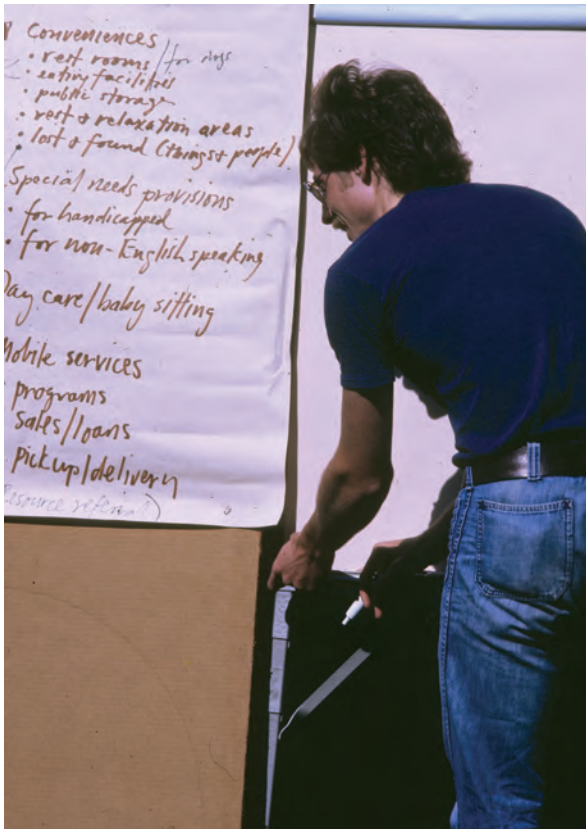 Conveniences
• rest rooms/for dogs
• eating facilities
• public storage
• rest + relaxation areas
• lost + found (things + people)
Special needs provisions
• for handicapped
• for non-English speaking
Day care/baby sitting
Mobile services
programs
sales/loans
pickup/delivery
Resource referral)